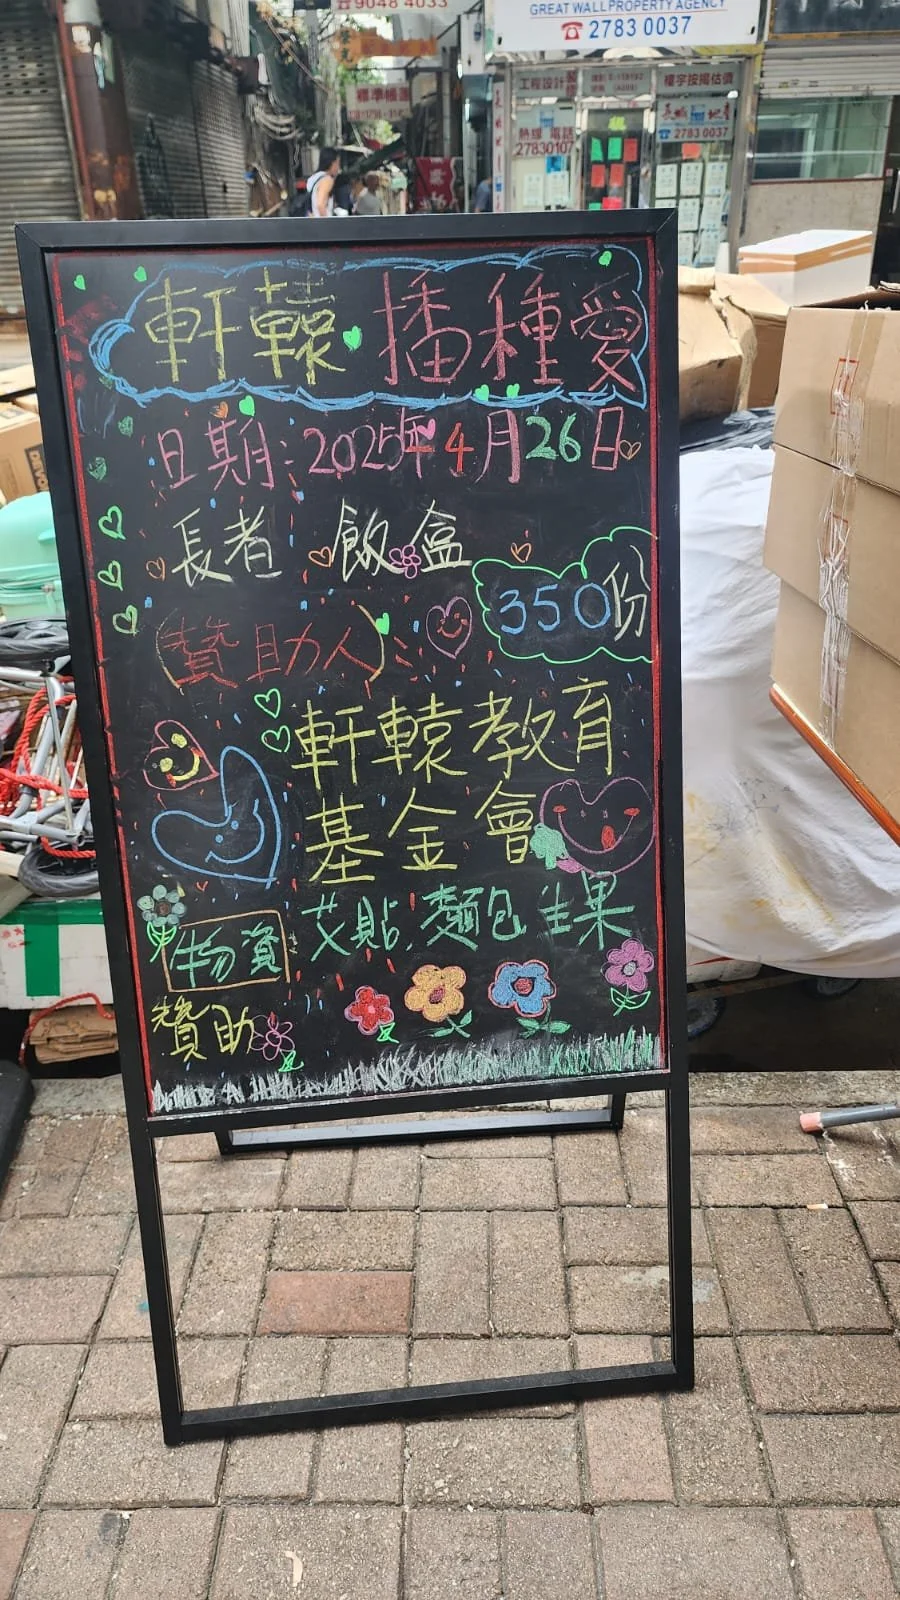 ☎9048 4033
GREAT WALL PROPERTY AGENCY
☎ 2783 0037
工程設計
樓宇按揭估價
標準帳篷
長城地產
☎ 2783 0037
熱線 電話
27830107
軒轅 播種愛
日期:2025年4月26日
長者 飯盒
350份
(贊助人):
軒轅教育
基金會
物資 艾貼 麵包 生果
贊助